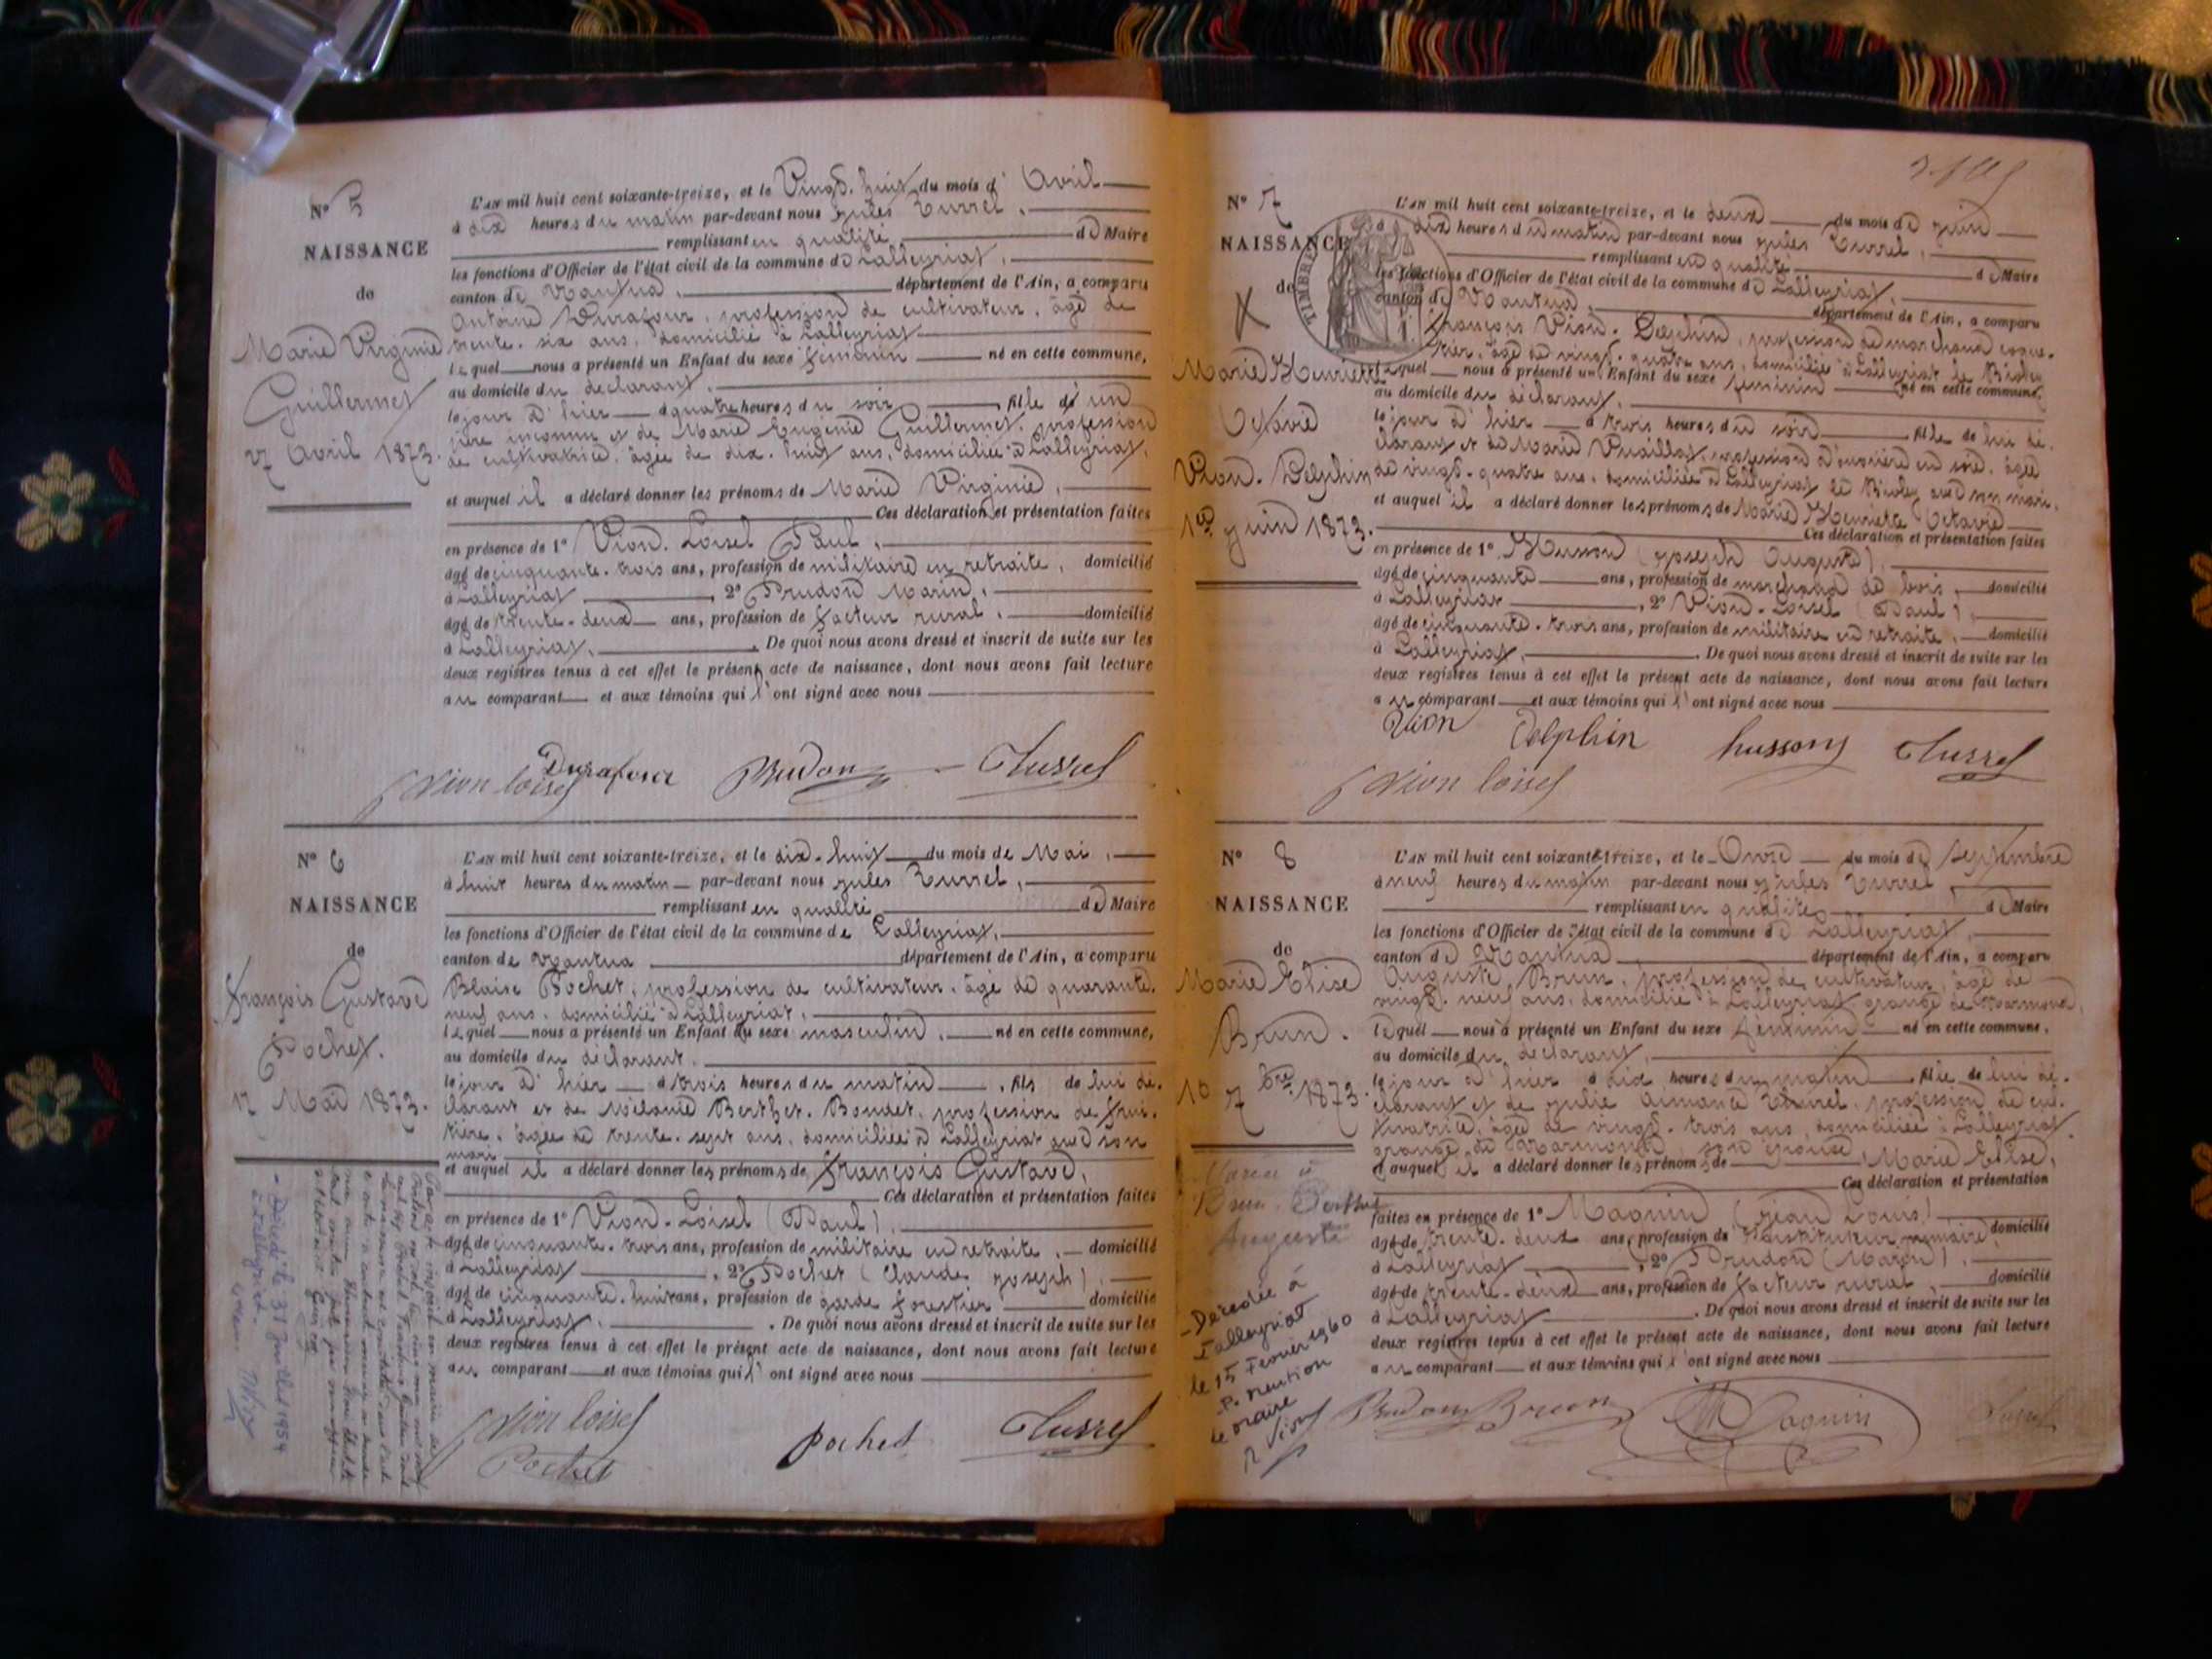 N° 5
NAISSANCE
de
Marie Virginie
Guillermet
27 Avril 1873.
L'AN mil huit cent soixante-treize, et le Vingt-huit du mois d' Avril
à dix heures du matin par-devant nous Jules Turrel,
remplissant en qualité de Maire
les fonctions d'Officier de l'état civil de la commune de Lalleyriat,
canton de Nantua, département de l'Ain, a comparu
Antoine Durafour, profession de cultivateur, âgé de
trente-six ans, domicilié à Lalleyriat
lequel nous a présenté un Enfant du sexe féminin né en cette commune,
au domicile du déclarant,
le jour d'hier à quatre heures du soir fille de un
père inconnu et de Marie Eugénie Guillermet, profession
de cultivatrice, âgée de dix-huit ans, domiciliée à Lalleyriat,
et auquel il a déclaré donner les prénoms de Marie Virginie,
Ces déclaration et présentation faites
en présence de 1° Vion-Loisel Paul,
âgé de cinquante-trois ans, profession de militaire en retraite, domicilié
à Lalleyriat, 2° Prudon Marin,
âgé de trente-deux ans, profession de facteur rural, domicilié
à Lalleyriat. De quoi nous avons dressé et inscrit de suite sur les
deux registres tenus à cet effet le présent acte de naissance, dont nous avons fait lecture
au comparant et aux témoins qui l'ont signé avec nous
Durafour Prudon JTurrel
Vion loisel
N° 6
NAISSANCE
de
François Gustave
Pochet.
17 Mai 1873.
L'AN mil huit cent soixante-treize, et le dix-huit du mois de Mai,
à huit heures du matin par-devant nous Jules Turrel,
remplissant en qualité de Maire
les fonctions d'Officier de l'état civil de la commune de Lalleyriat,
canton de Nantua département de l'Ain, a comparu
Blaise Pochet, profession de cultivateur, âgé de quarante-
neuf ans, domicilié à Lalleyriat,
lequel nous a présenté un Enfant du sexe masculin, né en cette commune,
au domicile du déclarant,
le jour d'hier à trois heures du matin, fils de lui dé-
clarant et de Mélanie Berthet-Bondet, profession de frui-
tière, âgée de trente-sept ans, domiciliée à Lalleyriat avec son
mari
et auquel il a déclaré donner les prénoms de François Gustave,
Ces déclaration et présentation faites
en présence de 1° Vion-Loisel (Paul),
âgé de cinquante-trois ans, profession de militaire en retraite, domicilié
à Lalleyriat, 2° Pochet (Claude Joseph),
âgé de cinquante-huit ans, profession de garde forestier domicilié
à Lalleyriat. De quoi nous avons dressé et inscrit de suite sur les
deux registres tenus à cet effet le présent acte de naissance, dont nous avons fait lecture
au comparant et aux témoins qui l'ont signé avec nous
Vion loisel pochet JTurrel
Pochet
- Décédé le 31 Juillet 1954
à Lalleyriat -
N° 7
NAISSANCE
de
TIMBRE
Marie Henriette
Octavie
Vion-Delphin
1er Juin 1873.
L'AN mil huit cent soixante-treize, et le deux du mois de Juin
à dix heures du matin par-devant nous Jules Turrel,
remplissant en qualité de Maire
les fonctions d'Officier de l'état civil de la commune de Lalleyriat,
canton de Nantua, département de l'Ain, a comparu
François Vion-Delphin, profession de marchand coque-
tier, âgé de vingt-quatre ans, domicilié à Lalleyriat
lequel nous a présenté un Enfant du sexe féminin né en cette commune,
au domicile du déclarant,
le jour d'hier à trois heures du soir fille de lui dé-
clarant et de Marie profession d'ouvrière en soie, âgée
de vingt-quatre ans, domiciliée à Lalleyriat avec son mari,
et auquel il a déclaré donner les prénoms de Marie Henriette Octavie
Ces déclaration et présentation faites
en présence de 1° Husson (Joseph Auguste),
âgé de cinquante ans, profession de marchand de bois, domicilié
à Lalleyriat, 2° Vion-Loisel (Paul),
âgé de cinquante-trois ans, profession de militaire en retraite, domicilié
à Lalleyriat, De quoi nous avons dressé et inscrit de suite sur les
deux registres tenus à cet effet le présent acte de naissance, dont nous avons fait lecture
au comparant et aux témoins qui l'ont signé avec nous
Vion Delphin hussony JTurrel
Vion loisel
N° 8
NAISSANCE
de
Marie Elise
Brun.
10 7bre 1873.
L'AN mil huit cent soixante-treize, et le Onze du mois de Septembre
à neuf heures du matin par-devant nous Jules Turrel,
remplissant en qualité de Maire
les fonctions d'Officier de l'état civil de la commune de Lalleyriat,
canton de Nantua département de l'Ain, a comparu
Auguste Brun, profession de cultivateur, âgé de
vingt-neuf ans, domicilié à Lalleyriat grange de Marmond,
lequel nous a présenté un Enfant du sexe féminin né en cette commune,
au domicile du déclarant,
le jour d'hier à dix heures du matin fille de lui dé-
clarant et de Julie Aimance Turrel, profession de cul-
tivatrice, âgée de vingt-trois ans, domiciliée à Lalleyriat
grange de Marmond son épouse
et auquel il a déclaré donner les prénoms de Marie Elise,
Ces déclaration et présentation
faites en présence de 1° Maquin (Jean Louis)
âgé de trente-deux ans, profession de Instituteur primaire, domicilié
à Lalleyriat, 2° Prudon (Marin),
âgé de trente-deux ans, profession de facteur rural, domicilié
à Lalleyriat. De quoi nous avons dressé et inscrit de suite sur les
deux registres tenus à cet effet le présent acte de naissance, dont nous avons fait lecture
au comparant et aux témoins qui l'ont signé avec nous
Prudon Brun Maquin
Mariée à
Auguste
- Décédée à
Lalleyriat
le 15 Fevrier 1960
P. mention
le Maire